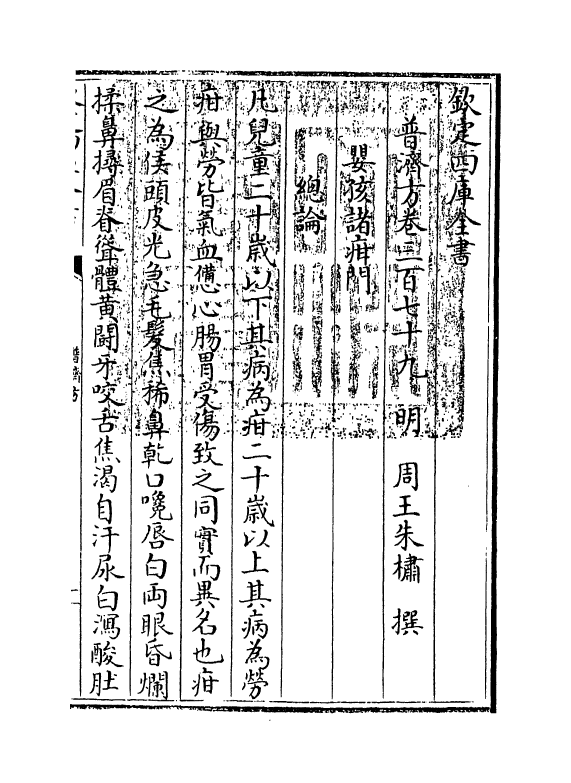 欽定四庫全書
普濟方卷三百七十九 明 周王朱橚 撰
嬰孩諸疳門
總論
凡兒童二十歲以下其病為疳二十歲以上其病為勞
疳與勞皆氣血憊心腸胃受傷致之同實而異名也疳
之為候頭皮光急毛髮焦稀鼻乾口嚵唇白兩眼昏爛
揉鼻撏眉脊聳體黃鬭牙咬舌焦渴自汗尿白瀉酸肚
普濟方